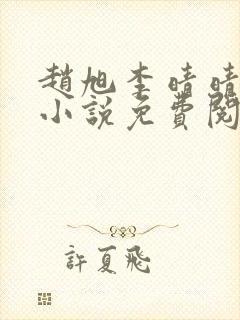 趙旭李晴晴
小說免費閱
許夏飛